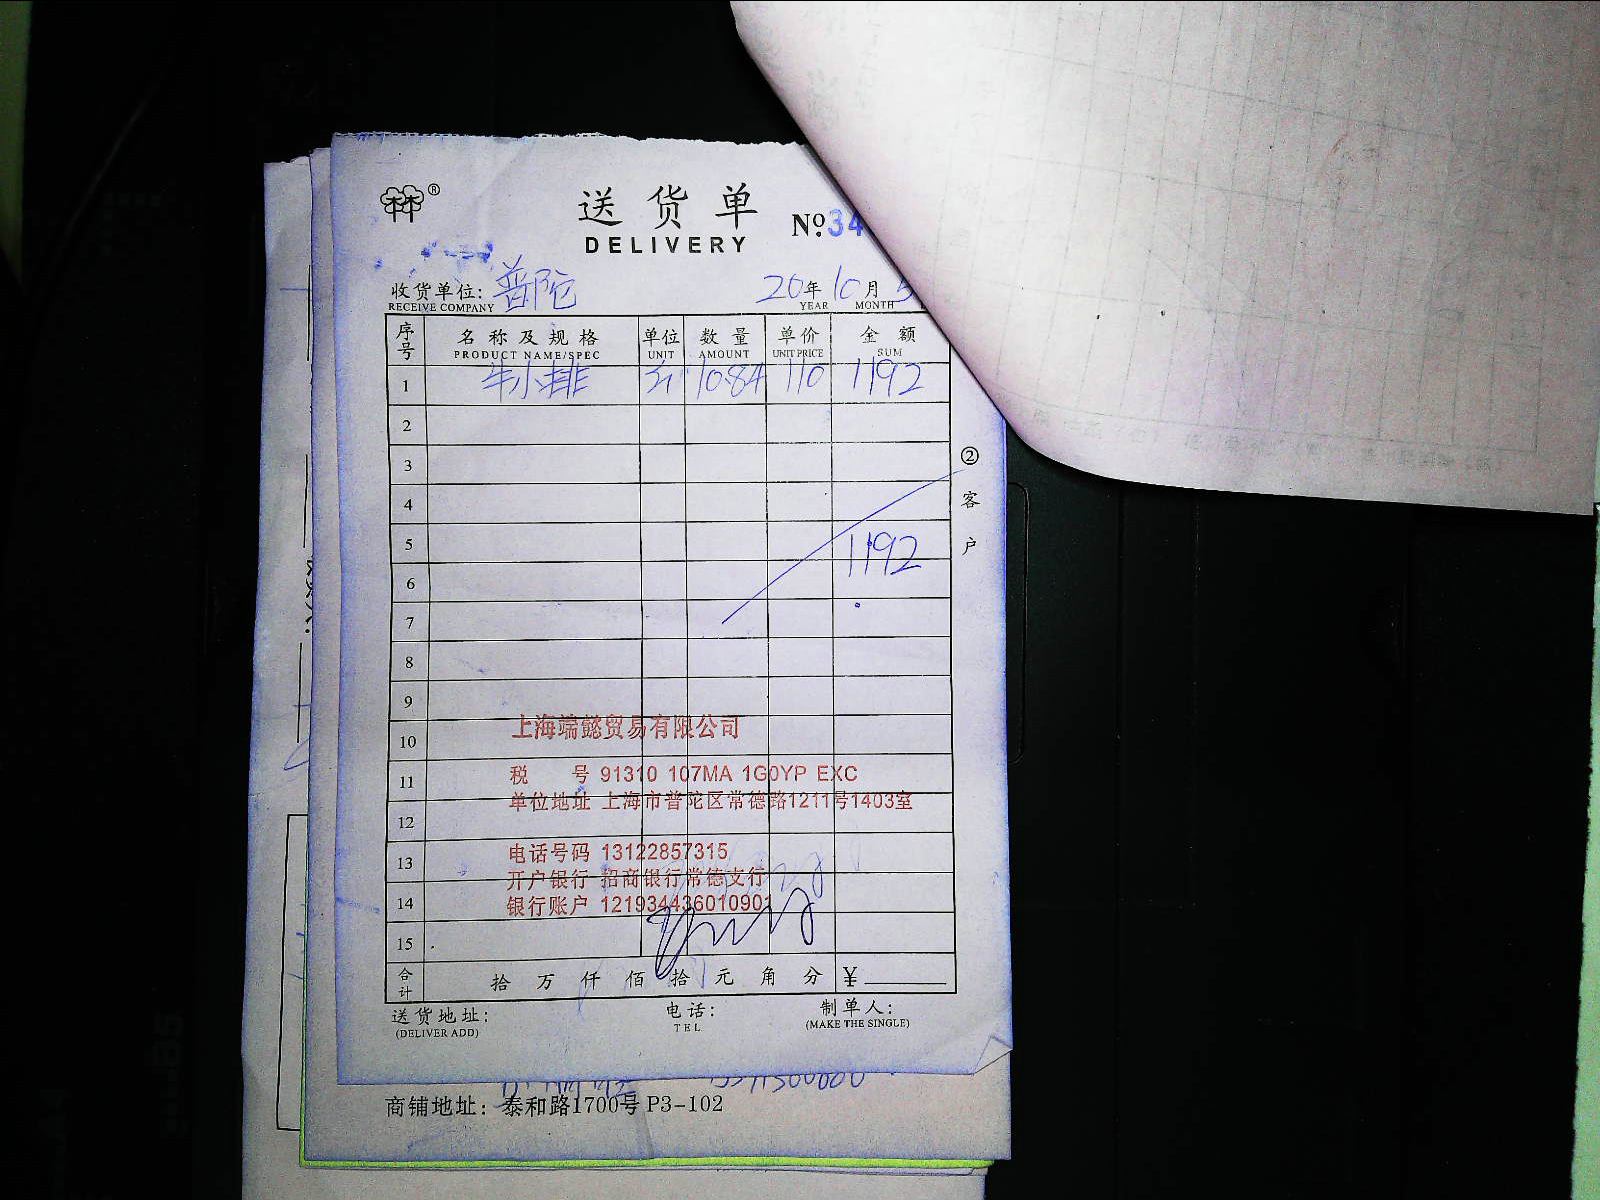 送货单
DELIVERY
№34
收货单位: 普陀
RECEIVE COMPANY
20年10月5
YEAR MONTH
序号 名称及规格 单位 数量 单价 金额
PRODUCT NAME/SPEC UNIT AMOUNT UNIT PRICE SUM
1 牛小排 10.84 110 1192
2
3
4
5 1192
6
7
8
9
10
11
12
13
14
15
②客户
上海端懿贸易有限公司
税 号 91310 107MA 1G0YP EXC
单位地址 上海市普陀区常德路1211号1403室
电话号码 13122857315
开户银行 招商银行常德支行
银行账户 121934436010901
合计 拾 万 仟 佰 拾 元 角 分 ¥
送货地址: 电话: 制单人:
(DELIVER ADD) TEL (MAKE THE SINGLE)
商铺地址: 泰和路1700号 P3-102